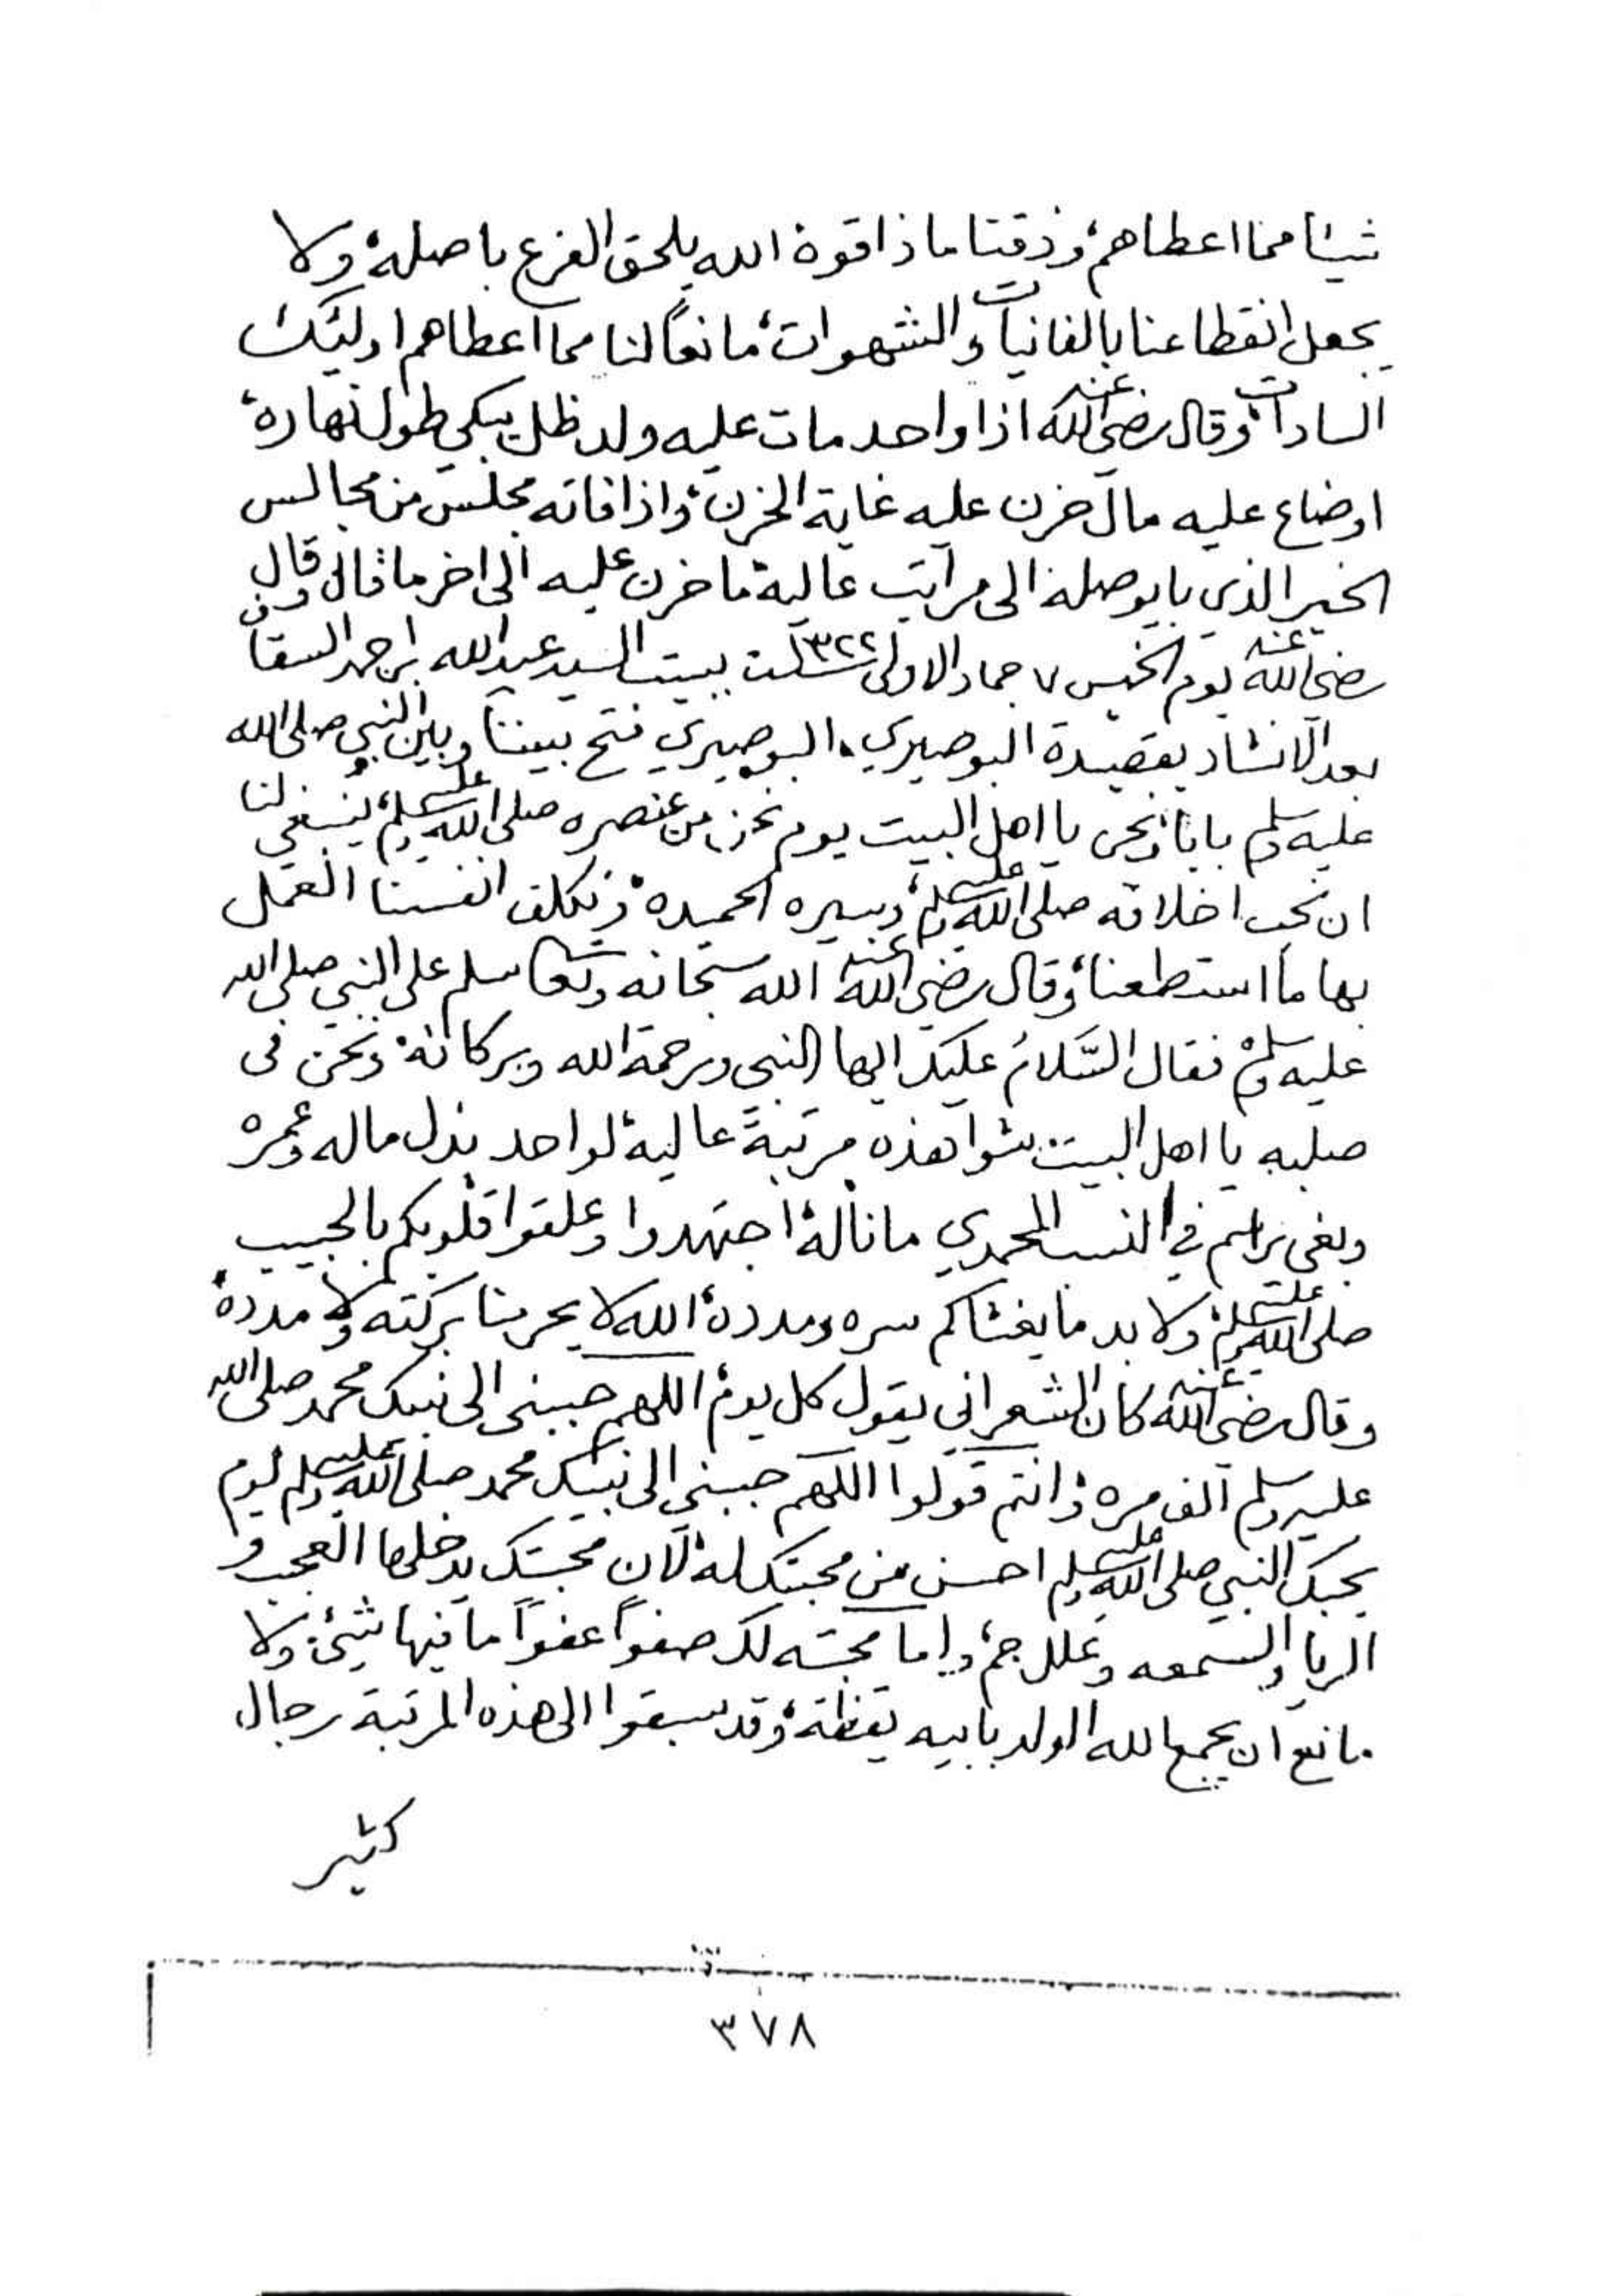 شيئا مما اعطاهم، وذقنا ماذاقوة الله يلحق الفرع باصله، ولا
يجعل انقطاعنا بالفانيات والشهوات، مانعاً لنا مما اعطاهم اوليئك
السادات، وقال رضي الله عنه اذا واحد مات عليه ولد ظل يبكي طول نهاره،
اوضاع عليه مال حزن عليه غاية الحزن، واذا فاته مجلس من مجالس
الخير الذي بايوصله الى مراتب عالية، ما حزن عليه الى اخر ما قال، وقال
رضي الله عنه يوم الخميس ٧ جماد الاولى سنة ٣٢٢ ببيت السيد عبدالله بن احمد السقاف
بعد الانشاد بقصيدة البوصيري، البوصيري فتح بيننا وبين النبي صلى الله
عليه وسلم بابا، ونحن يا اهل البيت يوم نحن من عنصره صلى الله عليه وسلم، ينبغي لنا
ان نحب اخلاقه صلى الله عليه وسلم، وسيره الحميدة، ونكلف انفسنا العمل
بها ما استطعنا، وقال رضي الله عنه الله سبحانه وتعا سلم على النبي صلى الله
عليه وسلم، فقال السَّلامُ عليك ايها النبي ورحمة الله وبركاته، ونحن في
صلبه يا اهل البيت، شوا هذه مرتبةً عالية، لواحد بذل ماله وعمره
وبغى براسم في النسب المحمدي ما ناله، اجتهدوا وعلقوا قلوبكم بالحبيب
صلى الله عليه وسلم، ولا بد ما يغشاكم سره ومدده، الله لا يحرمنا بركته ولا مدده،
وقال رضي الله عنه كان الشعراني يقول كل يوم، اللهم حببني الى نبيك محمد صلى الله
عليه وسلم الف مره، وانتم قولوا اللهم حببني الى نبيك محمد صلى الله عليه وسلم ليوم
يحبك النبي صلى الله عليه وسلم احسن من محبتك له، لان محبتك يدخلها العجب و
الريا والسمعه وعلل جم، واما محبته لك صفواً عفواً ما فيها شيئ، ولا
مانع ان يجمع الله الولد بابيه يقظة، وقد سبقوا الى هذه المرتبة رجال
كثير
٣٧٨